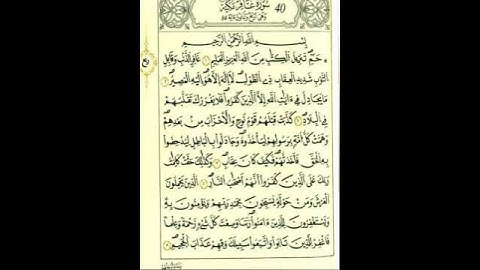 سورة غافر مكية
40
بِسْمِ اللَّهِ الرَّحْمَٰنِ الرَّحِيمِ
حمٓ تَنزِيلُ الْكِتَٰبِ مِنَ اللَّهِ الْعَزِيزِ الْعَلِيمِ غَافِرِ الذَّنۢبِ وَقَابِلِ
التَّوْبِ شَدِيدِ الْعِقَابِ ذِے الطَّوْلِ لَآ إِلَٰهَ إِلَّا هُوَ إِلَيْهِ الْمَصِيرُ
مَا يُجَٰدِلُ فِےٓ ءَايَٰتِ اللَّهِ إِلَّا الَّذِينَ كَفَرُوا۟ فَلَا يَغْرُرْكَ تَقَلُّبُهُمْ
فِے الْبِلَٰدِ كَذَّبَتْ قَبْلَهُمْ قَوْمُ نُوحٍ وَالْأَحْزَابُ مِنۢ بَعْدِهِمْ
وَهَمَّتْ كُلُّ أُمَّةٍۭ بِرَسُولِهِمْ لِيَأْخُذُوهُ وَجَٰدَلُوا۟ بِالْبَٰطِلِ لِيُدْحِضُوا۟
بِهِ الْحَقَّ فَأَخَذتُّهُمْ فَكَيْفَ كَانَ عِقَابِ وَكَذَٰلِكَ حَقَّتْ كَلِمَٰتُ
رَبِّكَ عَلَى الَّذِينَ كَفَرُوٓا۟ أَنَّهُمْ أَصْحَٰبُ النَّارِ الَّذِينَ يَحْمِلُونَ
الْعَرْشَ وَمَنْ حَوْلَهُۥ يُسَبِّحُونَ بِحَمْدِ رَبِّهِمْ وَيُؤْمِنُونَ بِهِۦ
وَيَسْتَغْفِرُونَ لِلَّذِينَ ءَامَنُوا۟ رَبَّنَا وَسِعْتَ كُلَّ شَےْءٍ رَّحْمَةً وَعِلْمًا
فَاغْفِرْ لِلَّذِينَ تَابُوا۟ وَاتَّبَعُوا۟ سَبِيلَكَ وَقِهِمْ عَذَابَ الْجَحِيمِ